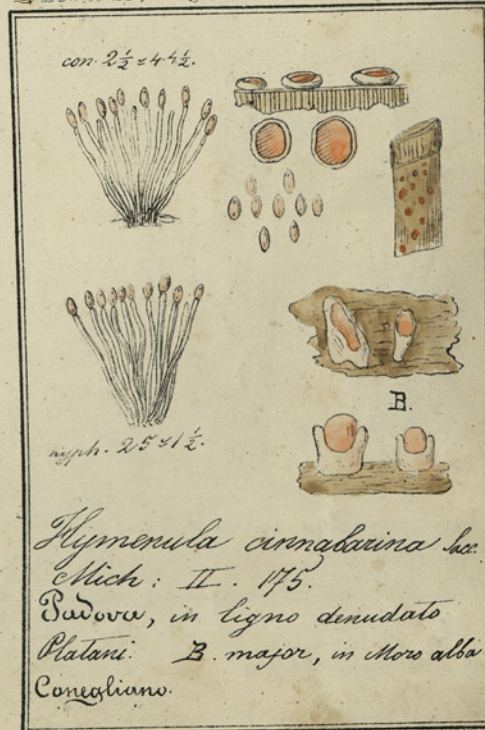 con. 2½ = 4-4½.
B.
hyph. 25 = 1½.
Hymenula cinnabarina Sacc.
Mich: II. 175.
Padova, in ligno denudato
Platani. B. major, in Moro alba
Conegliano.